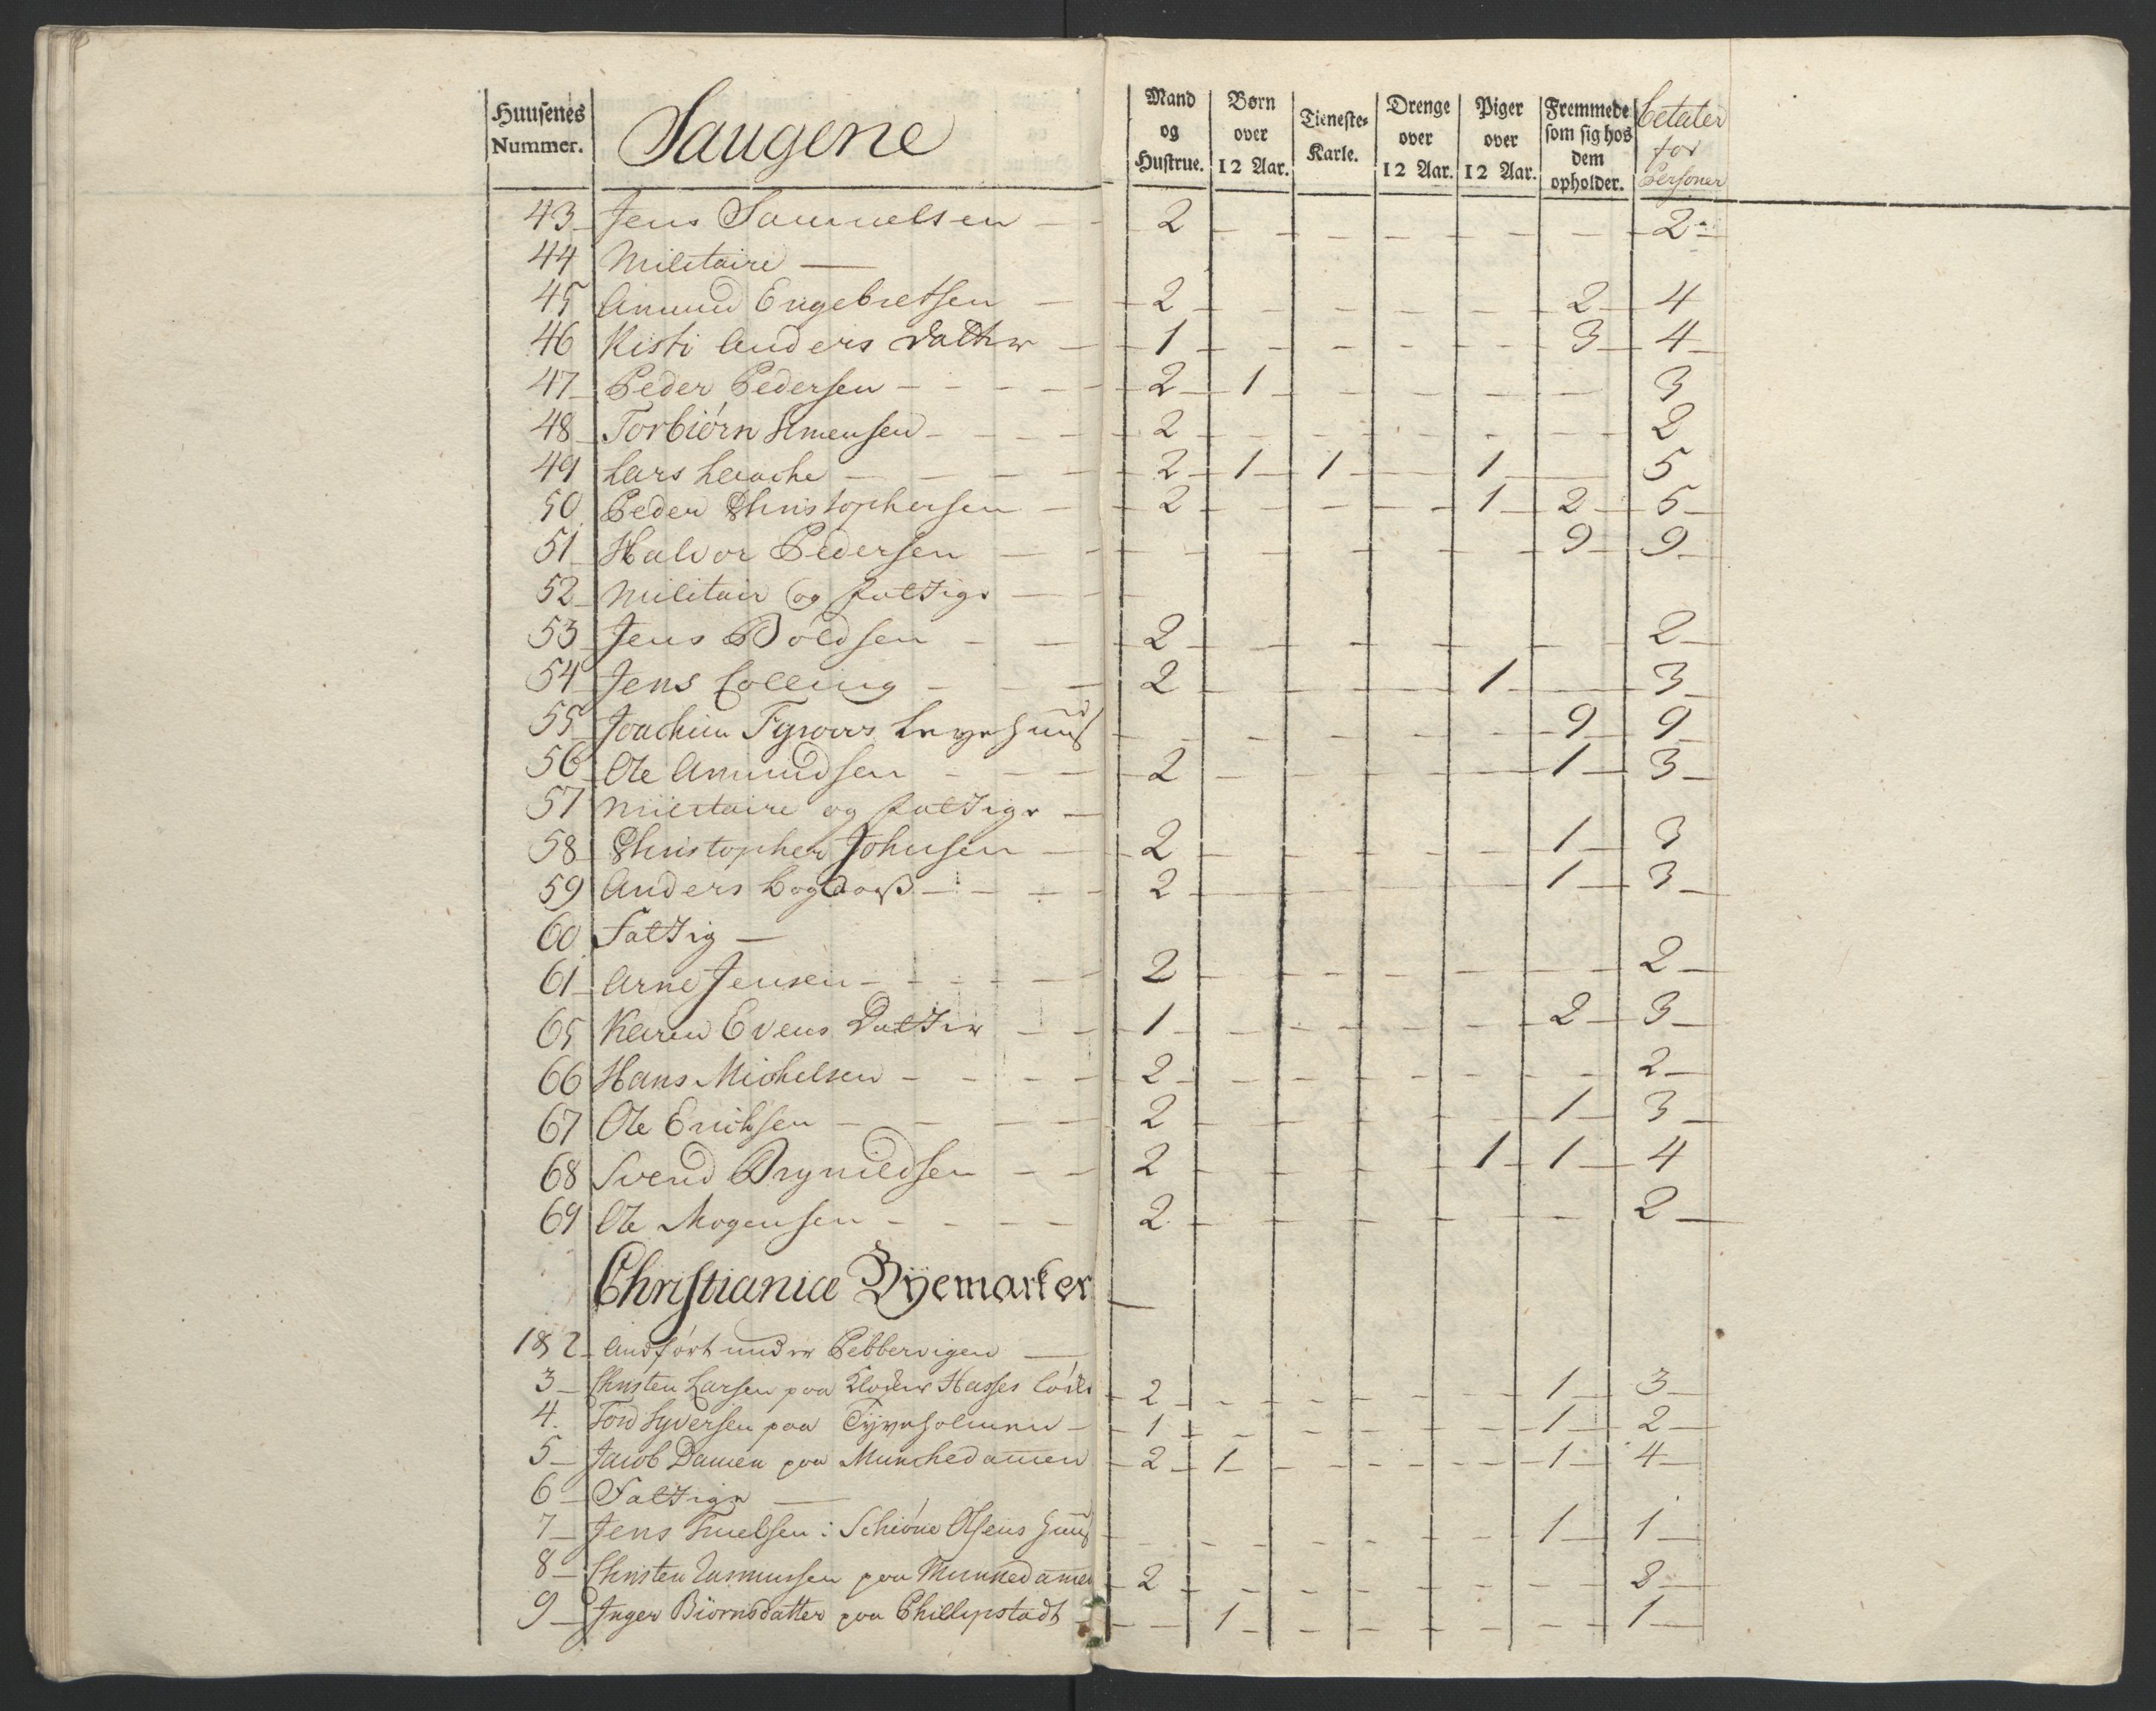 Huusenes Nummer. | Saugene | Mand og Hustrue. | Børn over 12 Aar. | Tieneste-Karle. | Drenge over 12 Aar. | Piger over 12 Aar. | Fremmede som sig hos dem opholder. | betaler for Personer
43 Jens Samuelsen — 2 - - - - - 2
44 Militaire —
45 Amund Engebretsen — 2 - - - - 2 4
46 Kisti Anders datter — 1 - - - - 3 4
47 Peder Pedersen — 2 1 - - - - 3
48 Torbiörn Simensen — 2 - - - - - 2
49 Lars Laache — 2 1 1 - 1 - 5
50 Peder Christophersen — 2 - - - 1 2 5
51 Halvor Pedersen — - - - - - 9 9
52 Militair og fattige —
53 Jens Boldsen — 2 - - - - - 2
54 Jens Colling — 2 - - - 1 - 3
55 Joachim Leye Huus - - - - - 9 9
56 Ole Amundsen — 2 - - - - 1 3
57 Militaire og fattige —
58 Christopher Johnsen — 2 - - - - 1 3
59 Anders — 2 - - - - 1 3
60 Fattig —
61 Arne Jensen — 2 - - - - - 2
65 Karen Evens Datter — 1 - - - - 2 3
66 Hans Michelsen — 2 - - - - - 2
67 Ole Erichsen — 2 - - - - 1 3
68 Svend Brynildsen — 2 - - - 1 1 4
69 Ole Mogensen — 2 - - - - - 2
Christiania Byemarker —
1 & 2 Andfört under Pebbervigen —
3 Christen Larsen paa Hasses 2 - - - - 1 3
4. Tord Syversen paa Tyveholmen — 1 - - - - 1 2
5 Jacob Damen paa Munchedamen — 2 1 - - - 1 4
6 Fattige —
7 Jens i Schiöne Olsens Huus - - - - - 1 1
8 Christen Rasmussen paa Munkedamen 2 - - - - - 2
9 Inger Biörnsdatter paa Phillipstadt — - 1 - - - - 1